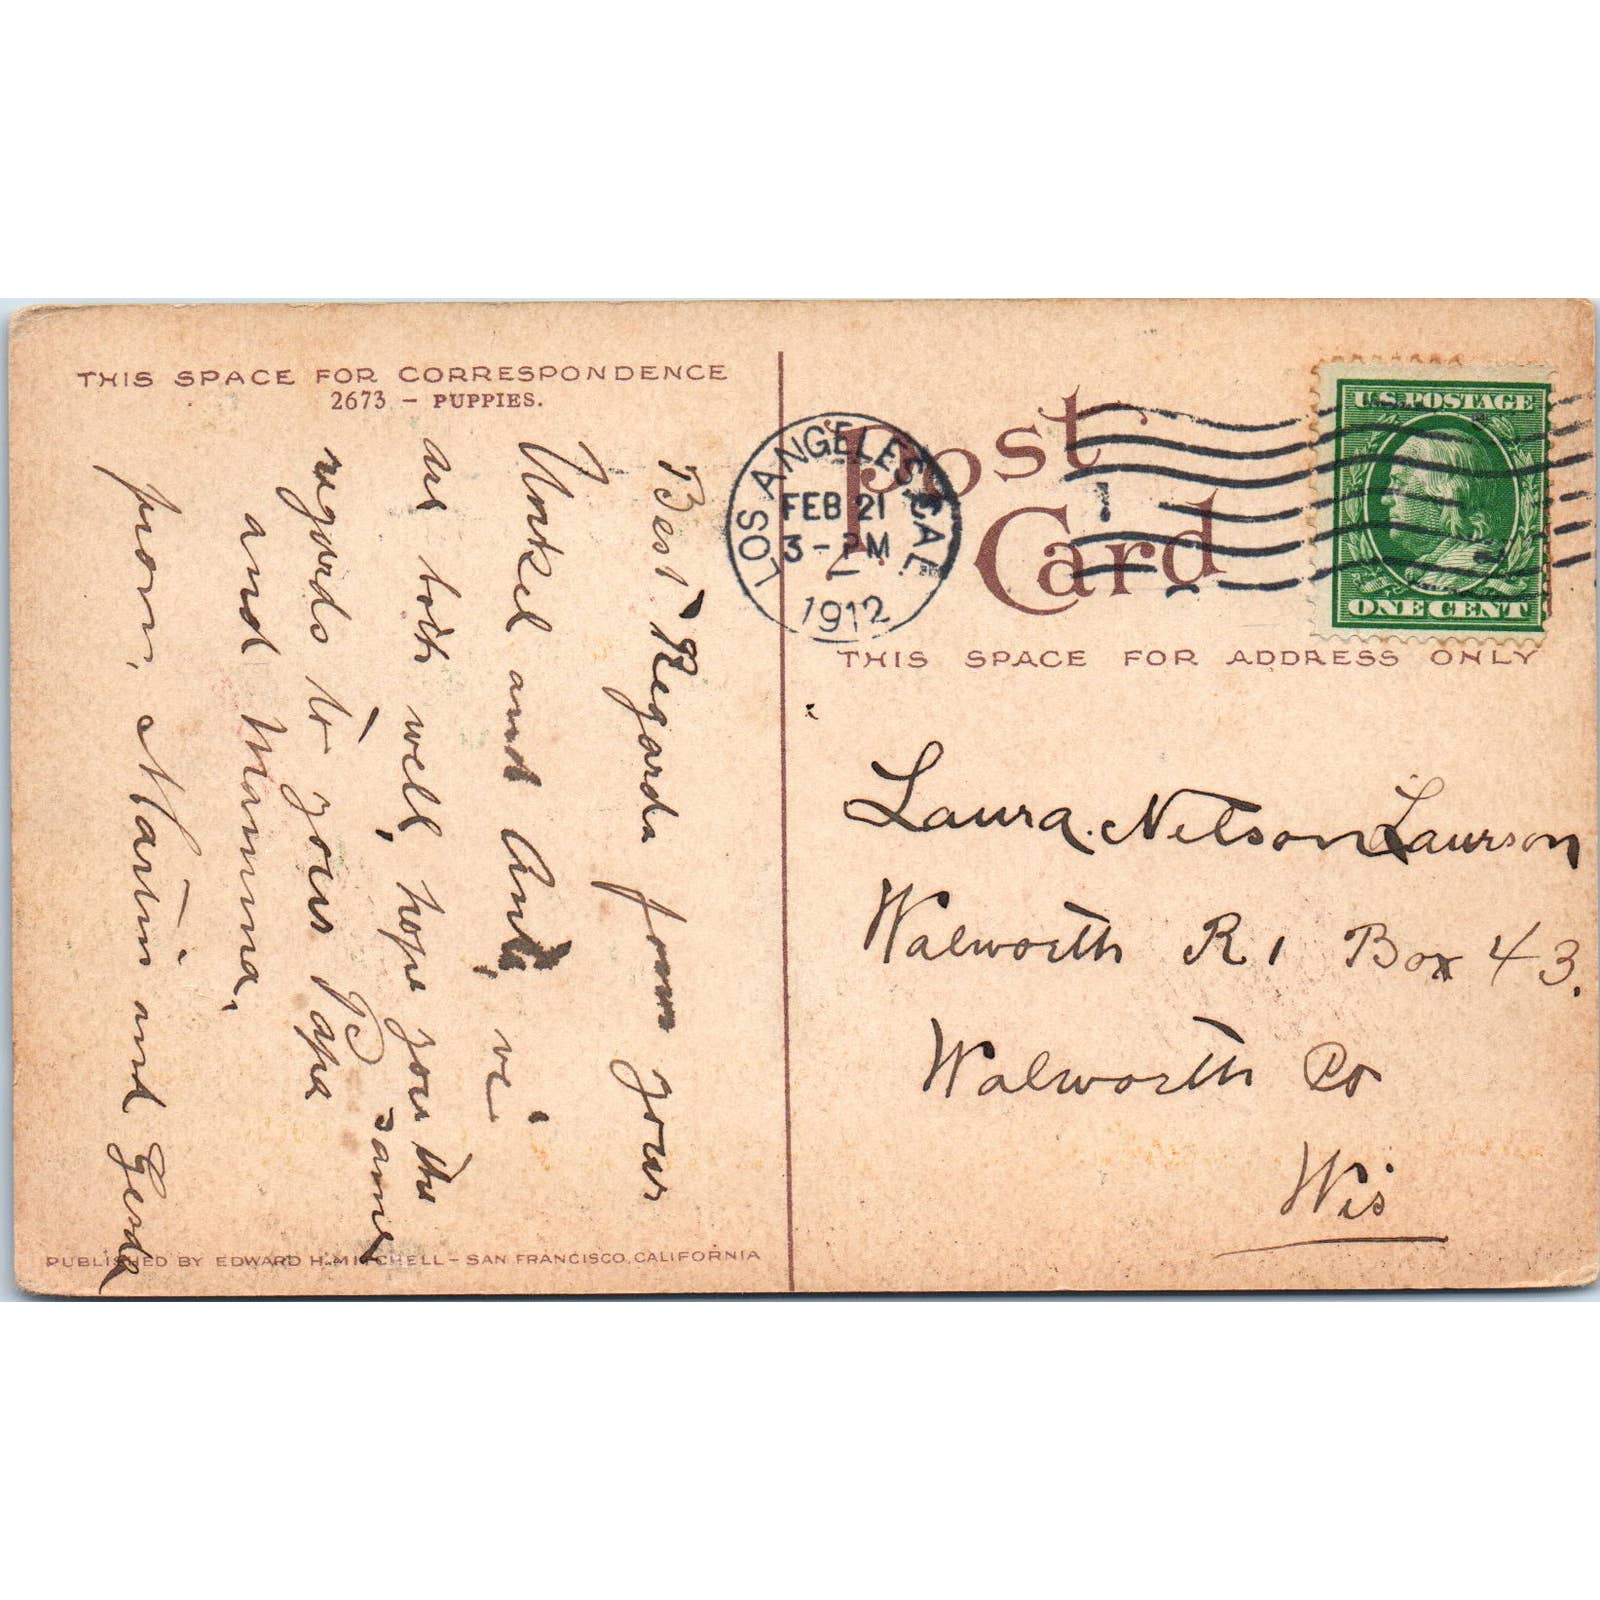 THIS SPACE FOR CORRESPONDENCE
2673 – PUPPIES.
Best Regards from your
Unkel and Ant, vi
are both well, hope you the
same
regards to your Papa
and Mamma,
from, Martin and Gerda
PUBLISHED BY EDWARD H. MITCHELL – SAN FRANCISCO, CALIFORNIA
Post Card
LOS ANGELES, CAL.
FEB 21
3 - PM
1912
1
U.S. POSTAGE
ONE CENT
THIS SPACE FOR ADDRESS ONLY
Laura. Nelson Laurson
Walworth R 1 Box 43.
Walworth Co
Wis